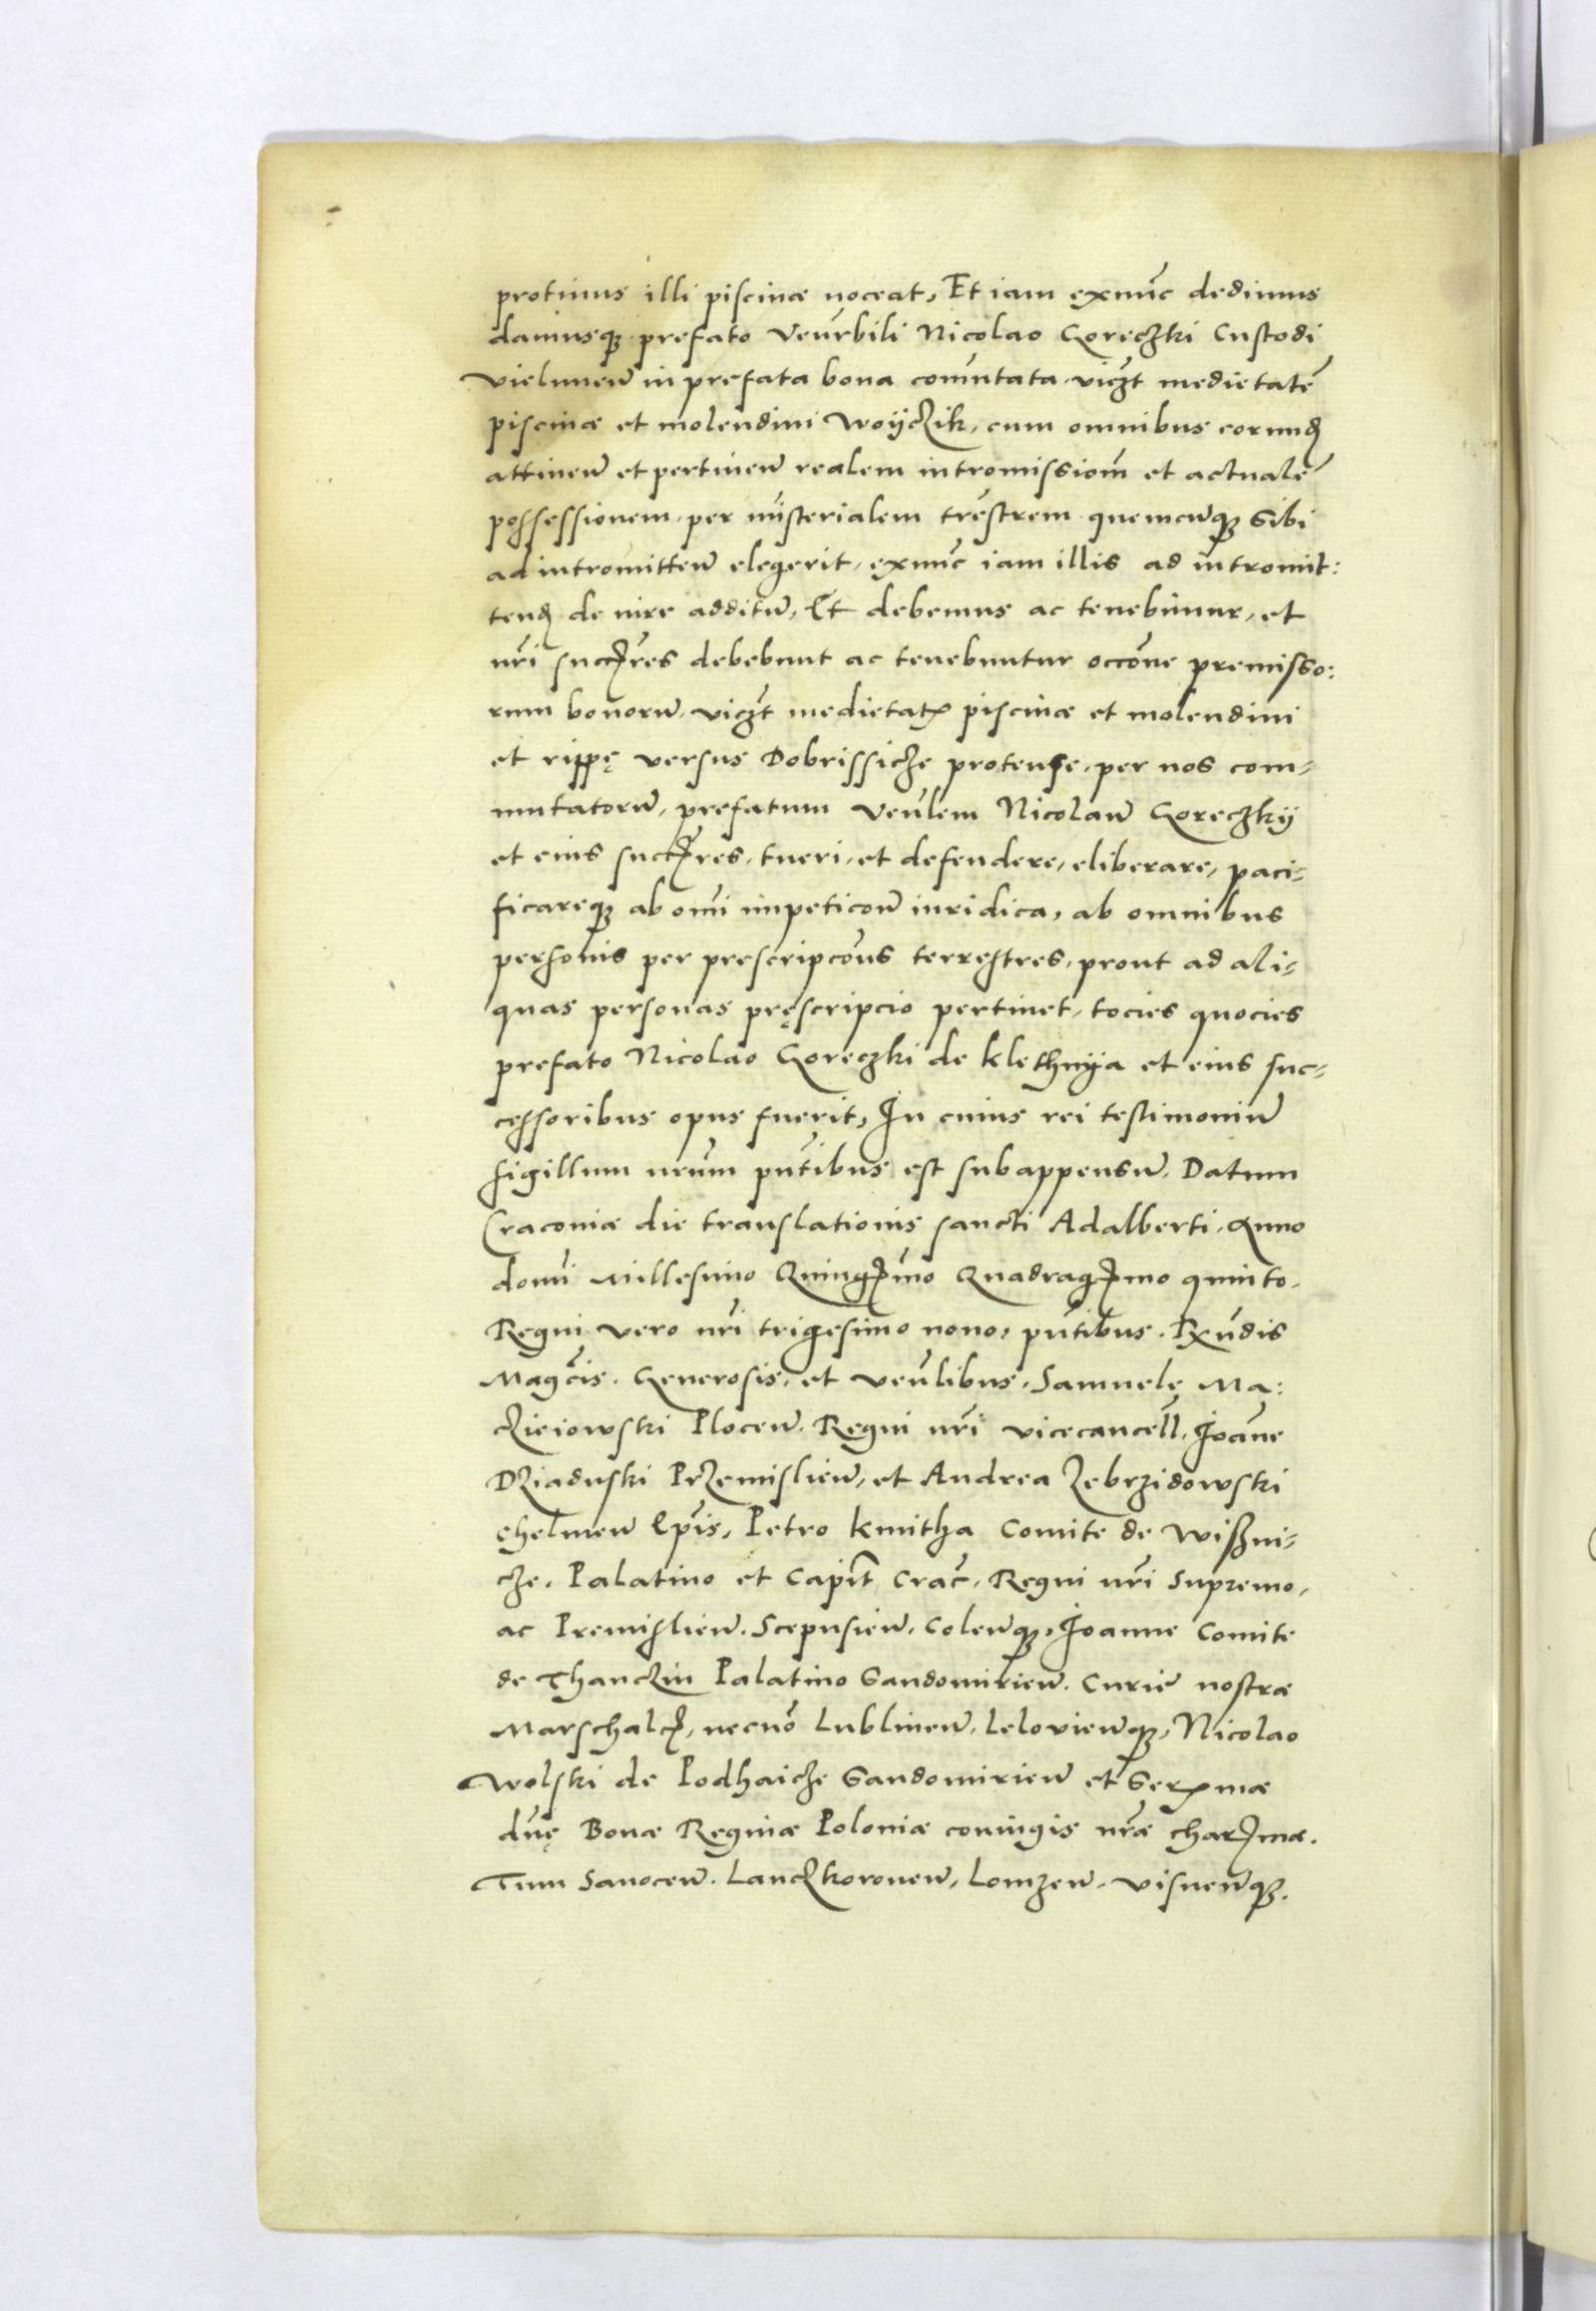 protinus illi piscinæ noceat, Et iam exnũc dedimus
damusq; prefato Venrbili Nicolao Goreczki Custodi
vielunen̄ in prefata bona comutata viczt medietatẽ
piscinæ et molendini Woÿczik, cum omnibus eorund
attinen̄ et pertinen̄ realem intromissiom̃ et actualẽ
possessionem per ministerialem trẽstrem quemcunq; sibi
ad intromitten̄ elegerit, exnũc iam illis ad intromit:
tend de iure additũ, Et debemus ac tenebimur, et
nr̃i succr̃es debebunt ac tenebuntur occõne premisso:
rum bonorũ, viczt medietatis piscinæ et molendini
et rippę versus Dobrissicze protense, per nos com-
mutatorũ, prefatum Venlem Nicolaũ Goreczkÿ
et eius succr̃es, tueri, et defendere, eliberare, paci-
ficareq; ab om̃i impeticon̄ iuridica, ab omnibus
personis per prescripcõns terrestres, prout ad ali-
quas personas pręscripcio pertinet, tocies quocies
prefato Nicolao Goreczki de Klethnÿa et eius suc-
cessoribus opus fuerit, In cuius rei testimoniũ
sigillum nrũm pñtibus est subappensũ, Datum
Cracoviæ die translationis sancti Adalberti, Anno
domi Millesimo Quingmo Quadragmo quinto,
Regni vero nr̃i trigesimo nono, pñtibus. Rxndis
Magcis. Generosis, et venlibus, Samuelę Ma:
czieiowski Plocen̄. Regni nr̃i vicecancell, Joãne
Dziaduski Przemislien̄, et Andrea Zebrzidowski
Chelmen̄ Ep̃is, Petro Kmitha Comite de Wißni-
cze, Palatino et Capit Crac̃, Regni nr̃i Supremo,
ac Premislien̄. Scepusien̄, Colen̄q;, Joanne Comite
de Thanczin Palatino Sandomirien̄. Curiæ nostræ
Marschalco, necnõ Lublinen̄, Lelovien̄q;, Nicolao
Wolski de Podhaicze Sandomirien̄ et Sermæ
dnę Bonæ Reginæ Poloniæ coniugis nrãe charmæ.
Tum Sanocen̄. Lanczkoronen̄, Lomzen̄, Visnen̄q;.